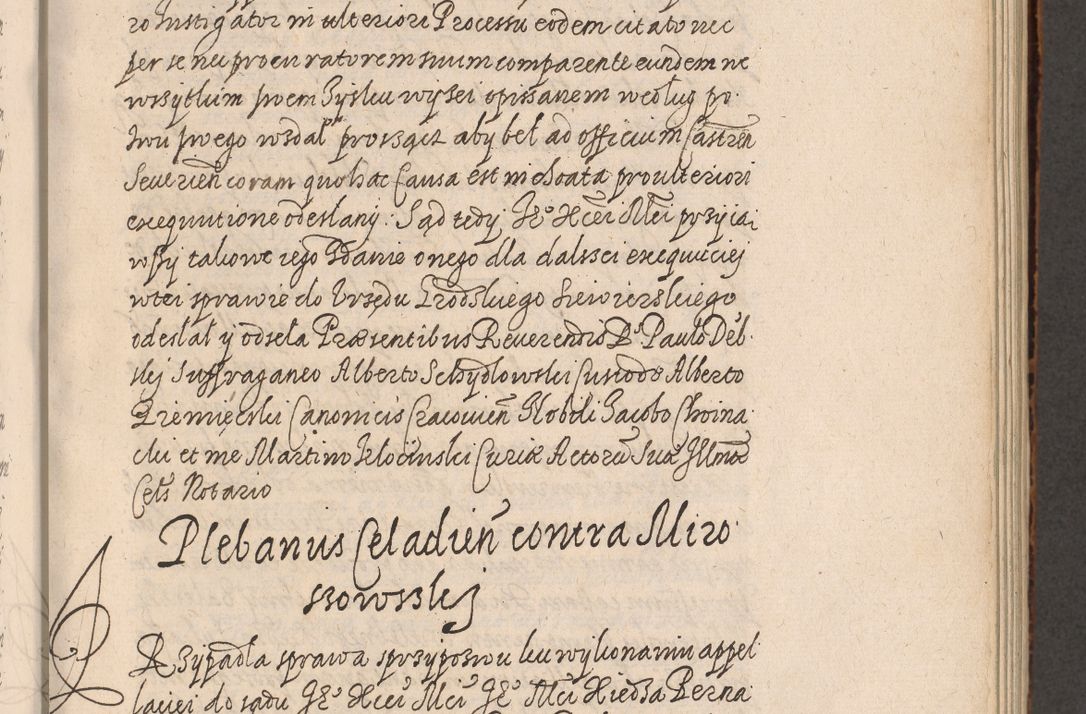 ro Instigator in ulteriori Processu eodem citato nec
per se nec procuratorem suum comparente eundem we
wszytkim swem Zysku wyzei opissanem według po
zwu swego wzdał prosząc aby beł ad officium Castren
Severien coram quo hac Causa est inchoata pro ulteriori
exequutione odesłany. Sąd tedy Je° Xcei Mci przyia
wszy takowe iego Zdanie onego dla dalszei exequuciej
wtei sprawie do Vrzędu Grodskiego Siewierskiego
odesłał y odseła Præsentibus Reverendis D. Paulo Deb
skj Suffraganeo Alberto Schydlowski Custode Alberto
Ziemięcski Canonicis Cracovien Nobili Jacobo Choina
cki et me Martino Kłocinski Curiæ Actorū Suæ Illmæ
Cels Notario
Plebanus Celadien contra Miro
szowsskj
Przypadła sprawa sprzypozwu ku wykonaniu appel
laciei do sądu Je° Xcei Mci Je° Mci Xiedza Berna